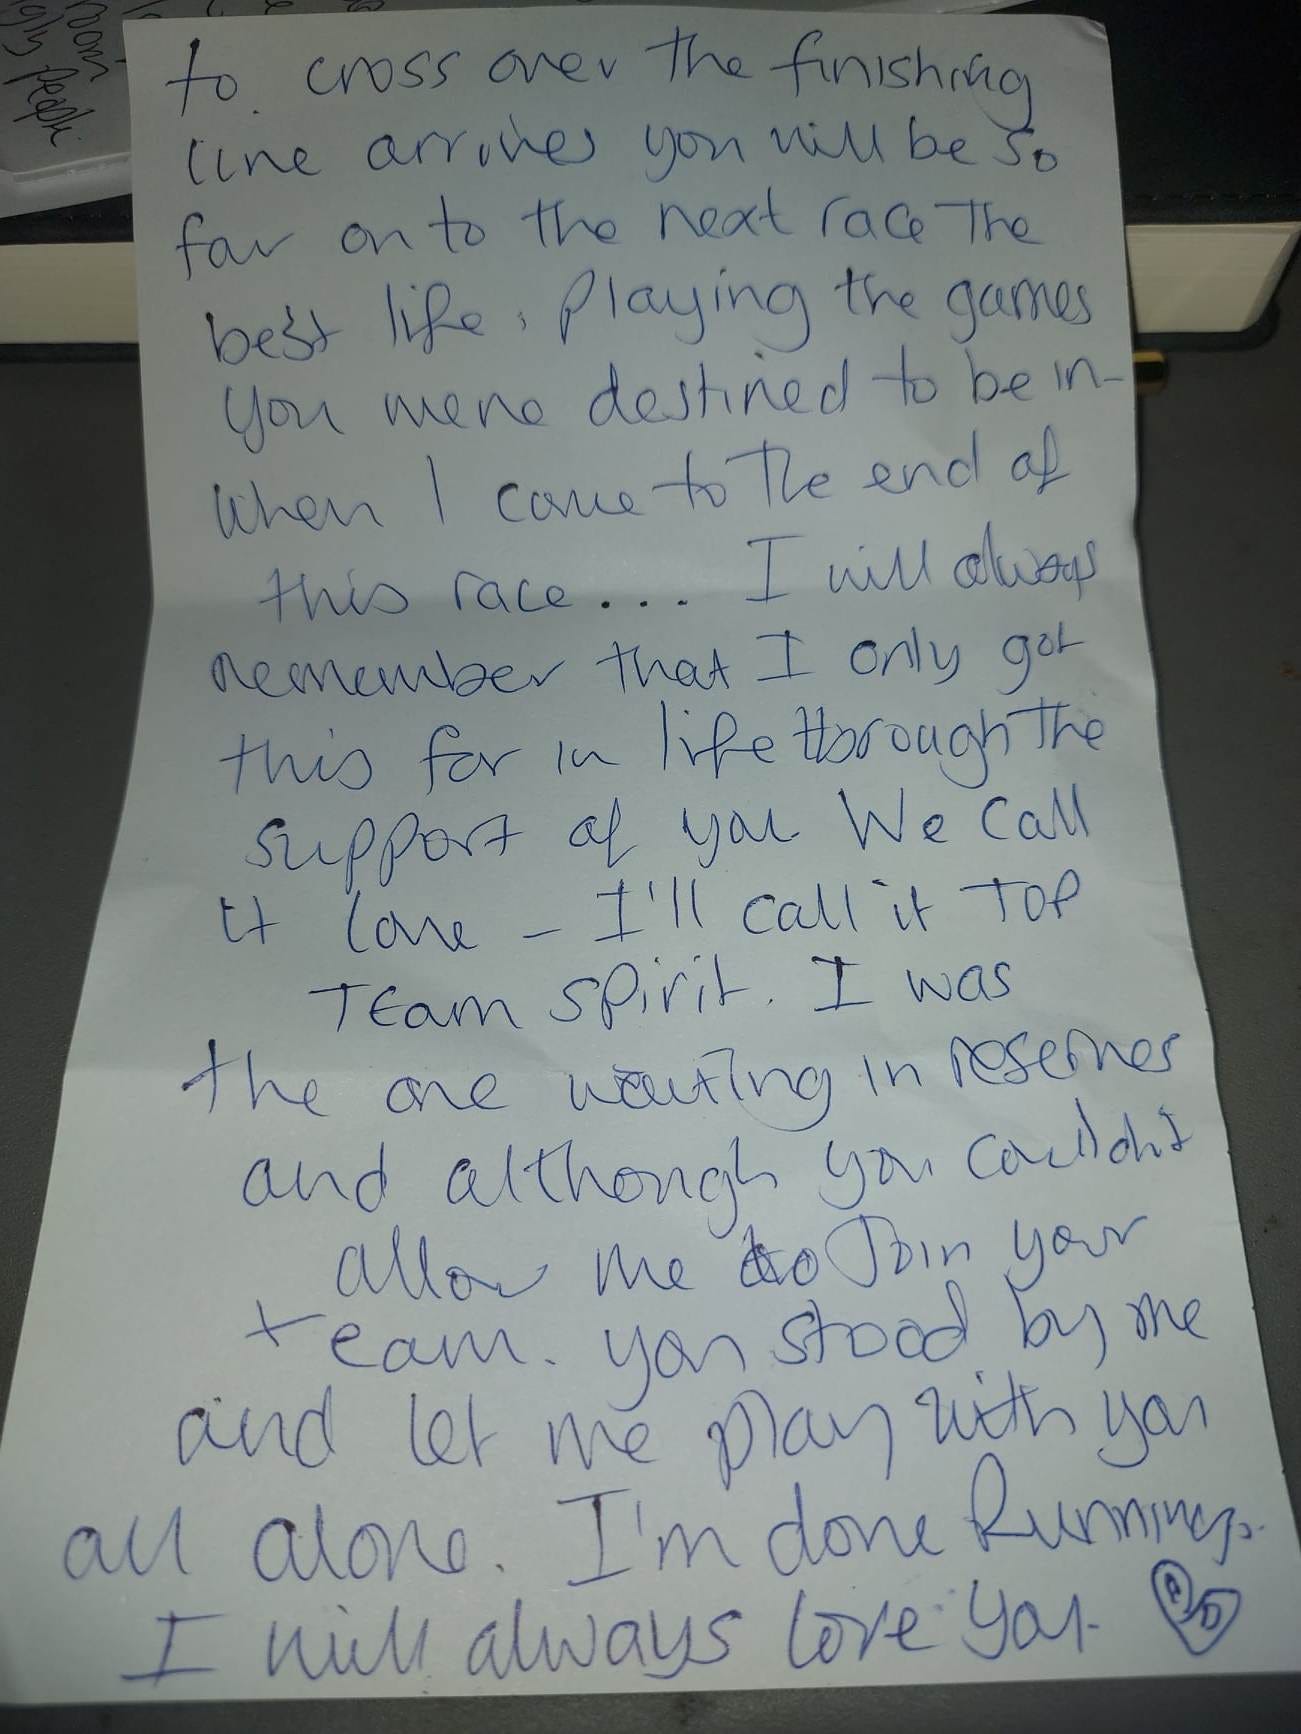 to cross over the finishing
line arrives you will be so
far on to the next race The
best life, Playing the games
you were destined to be in-
when I come to The end of
this race.... I will always
remember that I only got
this far in life through The
support of you We call
it love - I'll call it TOP
TEam spirit. I was
the one waiting in reserves
and although you couldn't
allow me to Join your
team. you stood by me
and let me play with you
all alone. I'm done Running.
I will always love you.
People